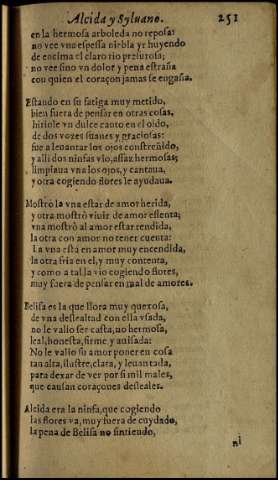 Alcida y Syluano. 251
en la hermosa arboleda no reposa:
no vee vna espessa niebla yr huyendo
de encima el claro rio presurosa;
no vee sino vn dolor y pena estraña
con quien el coraçon jamas se engaña.
Estando en su fatiga muy metido,
bien fuera de pensar en otras cosas,
hiriole vn dulce canto en el oido,
de dos vozes suaues y graciosas:
fue a leuantar los ojos constreñido,
y alli dos ninfas vio, assaz hermosas;
limpiaua vna los ojos, y cantaua,
y otra cogiendo flores le ayudaua.
Mostrò la vna estar de amor herida,
y otra mostrò viuir de amor essenta;
vna mostrò al amor estar rendida,
la otra con amor no tener cuenta:
La vna está en amor muy encendida,
la otra fria en el, y muy contenta,
y como a tal la vio cogiendo flores,
muy fuera de pensar en mal de amores.
Belisa es la que llora muy quexosa,
de vna deslealtad con ella vsada,
no le valio ser casta, no hermosa,
leal, honesta, firme, y auisada:
No le valio su amor poner en cosa
tan alta, ilustre, clara, y leuantada,
para dexar de ver por si mil males,
que causan coraçones desleales.
Alcida era la ninfa, que cogiendo
las flores va, muy fuera de cuydado,
la pena de Belisa no sintiendo,
ni